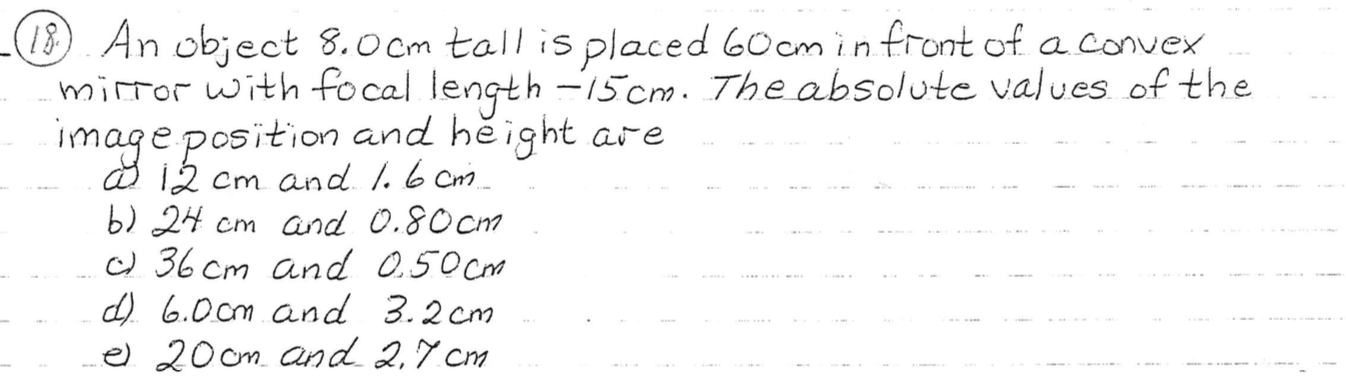 18. An object 8.0cm tall is placed 60cm in front of a convex
mirror with focal length -15cm. The absolute values of the
image position and height are
a) 12 cm and 1.6 cm
b) 24 cm and 0.80cm
c) 36cm and 0.50cm
d) 6.0cm and 3.2cm
e) 20cm and 2.7cm